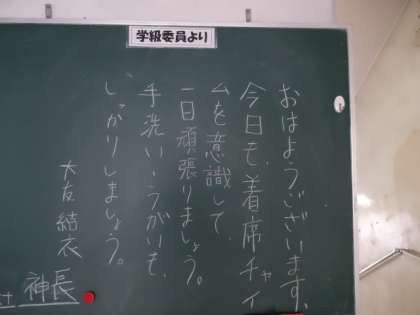 学級委員より
おはようございます。
今日も、着席チャイ
ムを意識して
一日頑張りましょう。
手洗い、うがいも、
しっかりしましょう。
大友結衣
神長